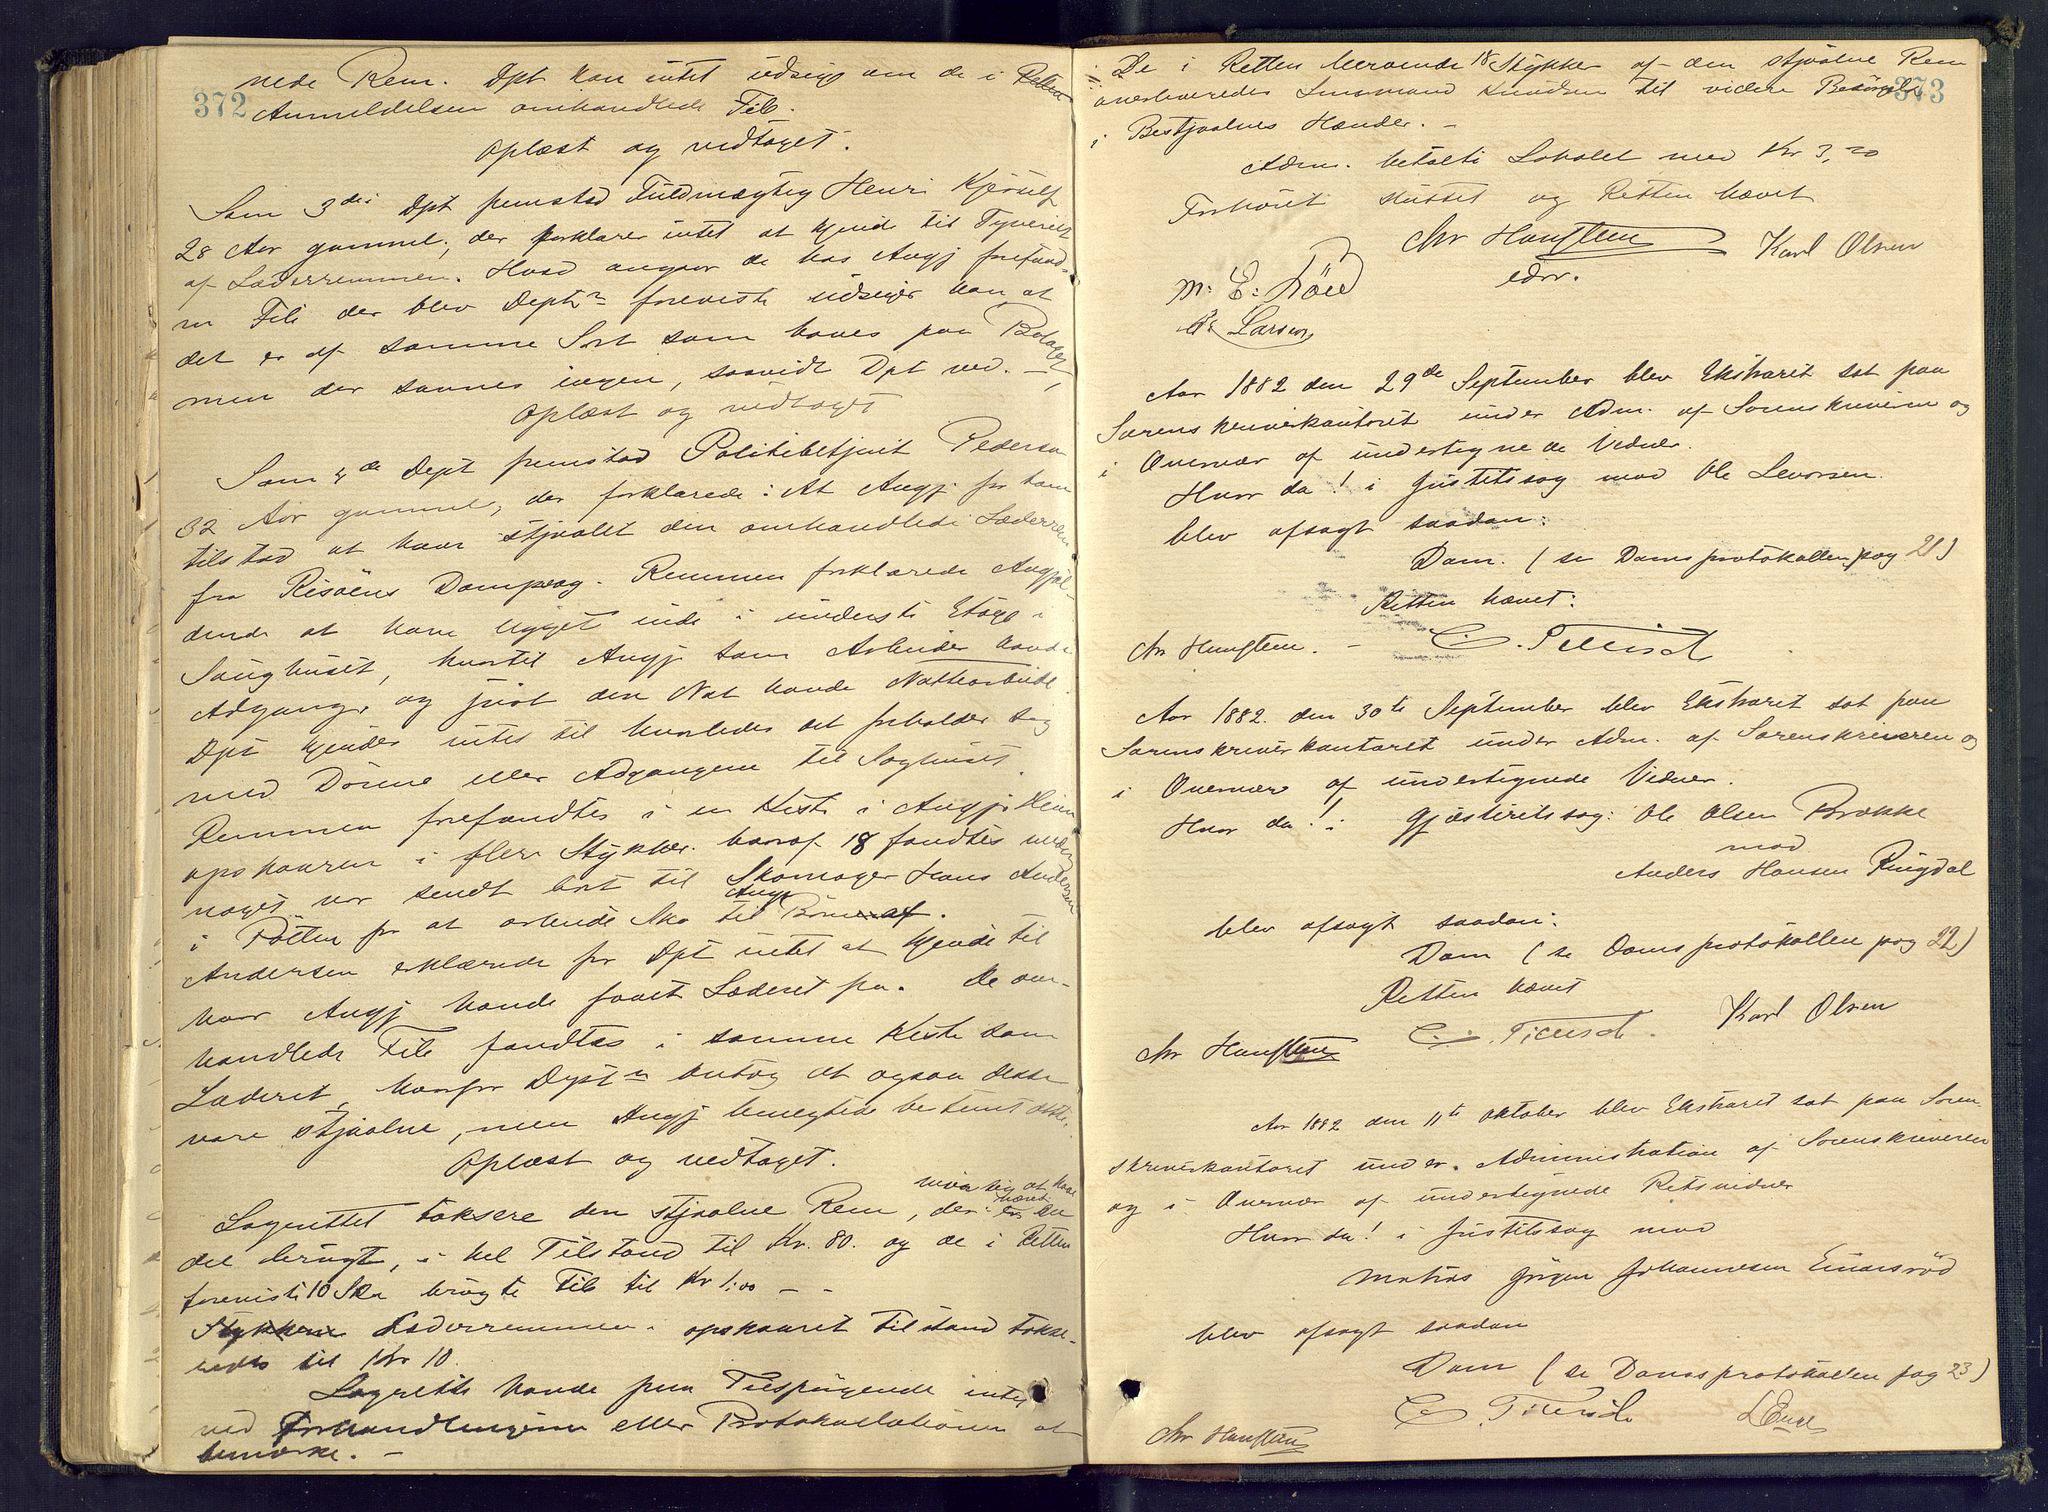 372
nede Rem. Dpt kan intet udsige om de i Retten
Anmeldelsen omhandlede File.
Oplæst og vedtaget.
Som 3die Dpt fremstod Fuldmægtig Henri Kjørulf
28 Aar gammel, der forklarer intet at kjende til Tyveriet
af Læderremmen. Hvad angaar de hos Angj forefund-
ne File der blev Deptn foreviste udsiger han, at
det er af samme Sort som haves paa Bruget,
men der savnes ingen, saavidt Dpt ved. –
Oplæst og vedtaget
Som 4de Dept fremstod Politibetjent Pedersen
32 Aar gammel, der forklarede: At Angj for ham
tilstod at have stjaalet den omhandlede Læderrem
fra Risöens Dampsag. Remmen forklarede Angjæl-
dende at have ligget inde i underste Etage i
Saughuset, hvortil Angj som Arbeider havde
Adgang, og just den Nat havde Nattearbeide.
Dpt kjender intet til hvorledes det forholder sig
med Dörene eller Adgangene til Saghuset.
Remmen forefandtes i en Kiste i Angjs Hjem
opskaaren i flere Stykker. hvoraf 18 fandtes medens
noget var sendt bort til Skomager Hans Andersen
i Potten for at arbeide Sko til Angjs Börn af.
Andersen erklærede for Dpt intet at kjende til
hvor Angj havde faaet Læderet fra. De om-
handlede File fandtes i samme Kiste som
Læderet, hvorfor Dpten antog at ogsaa disse
vare stjaalne, men Angj benegtede bestemt dette.
Oplæst og vedtaget.
Lagrettet taksere den stjaalne Rem, der viser sig at have været en
del brugt, i hel Tilstand til Kr. 80. og de i Retten
foreviste 10 Stk brugte File til Kr 1.00 – –
Stykkerne Læderremmen i opskaaret Tilstand takse-
redes til Kr 10.
Lagrette havde paa Tilspörgende intet
ved Forhandlingerne eller Protokollationen at
bemærke. –
373
De i Retten værende 18 Stykker af den stjaalne Rem
overleveredes Lensmand Knudsen til videre Besörgelse
i Bestjaalnes Hænder. –
Adm. betalte Lokalet med Kr 3,20
Forhöret sluttet og Retten hævet
Chr Hanssteen
edsv.
Karl Olsen
M. E.
Larsen
Aar 1882 den 29de September blev Ekstraret sat paa
Sorenskriverkontoret under Adm. af Sorenskriveren og
i Overvær af undertegnede Vidner.
Hvor da! i Justitssag mod Ole Levorsen.
blev afsagt saadan:
Dom. (se Domsprotokollen pag 21)
Retten hævet:
Chr Hanssteen. – C.
Aar 1882. den 30te September blev Ekstraret sat paa
Sorenskriverkontoret under Adm. af Sorenskriveren og
i Overvær af undertegnede Vidner.
Hvor da! i Gjæsteretssag: Ole Olsen Brække
mod
Anders Hansen Ringdal
blev afsagt saadan:
Dom (se Domsprotokollen pag 22)
Retten hævet
Chr Hanssteen C. Karl Olsen
Aar 1882 den 11te Oktober blev Ekstraret sat paa Soren-
skriverkontoret under Administration af Sorenskriveren
og i Overvær af undertegnede Retsvidner
Hvor da! i Justitssag mod
Matias Jörgen Johannesen Einersröd
blev afsagt saadan
Dom (se Domsprotokollen pag 23)
Chr Hanssteen C.